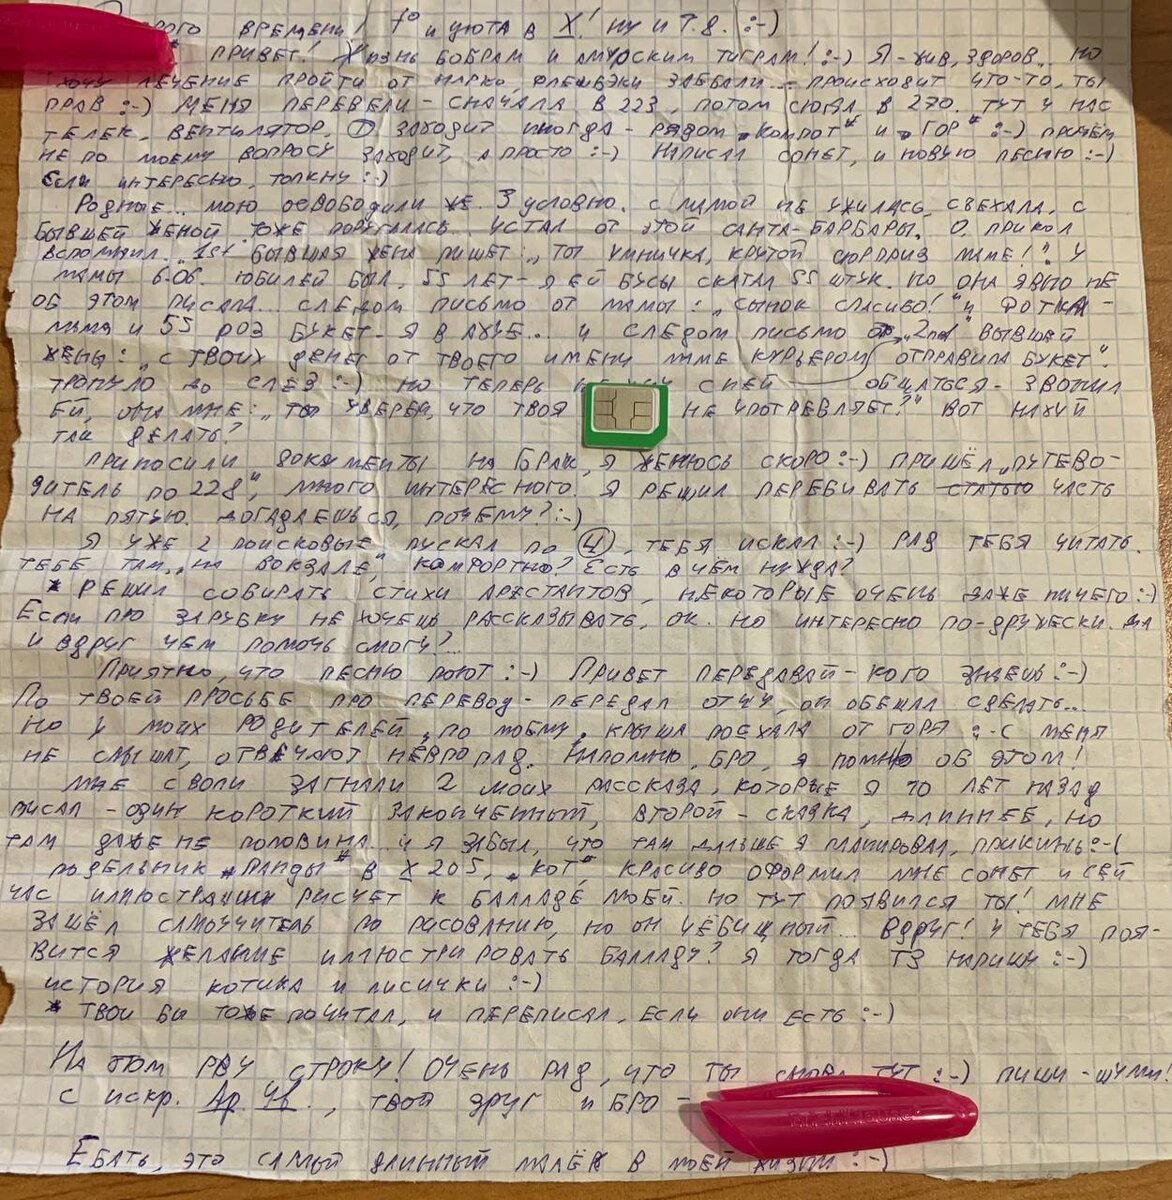 ДОБРОГО ВРЕМЕНИ! t° И УЮТА В X! НУ И Т.Д. :-)
ПРИВЕТ! ЖИЗНЬ БОБРАМ И АМУРСКИМ ТИГРАМ! :-) Я - ЖИВ, ЗДОРОВ... НО
ХОЧУ ЛЕЧЕНИЕ ПРОЙТИ ОТ НАРКО, ФЛЕШБЭКИ ЗАЕБАЛИ - ПРОИСХОДИТ ЧТО-ТО, ТЫ
ПРАВ :-) МЕНЯ ПЕРЕВЕЛИ - СНАЧАЛА В 223, ПОТОМ СЮДА В 270. ТУТ У НАС
ТЕЛЕК, ВЕНТИЛЯТОР, ЗАХОДИТ ИНОГДА - РЯДОМ "КОМПОТ" И "ГОР" :-) ПРИЧЁМ
НЕ ПО МОЕМУ ВОПРОСУ ЗАХОДИТ, А ПРОСТО :-) НАПИСАЛ СОНЕТ, И НОВУЮ ПЕСНЮ :-)
ЕСЛИ ИНТЕРЕСНО, ТОЛКНУ :-)
РОДНЫЕ... МОЮ ОСВОБОДИЛИ ЖЕ. 3 УСЛОВНО. С МАМОЙ НЕ УЖИЛАСЬ, СЪЕХАЛА, С
БЫВШЕЙ ЖЕНОЙ ТОЖЕ ПОРУГАЛАСЬ. УСТАЛ ОТ ЭТОЙ САНТА-БАРБАРЫ. О, ПРИКОЛ
ВСПОМНИЛ. "1st" БЫВШАЯ ЖЕНА ПИШЕТ: "ТЫ УМНИЧКА, КРУТОЙ СЮРПРИЗ МАМЕ!" У
МАМЫ 6.06. ЮБИЛЕЙ БЫЛ, 55 ЛЕТ - Я ЕЙ БУСЫ СКАТАЛ 55 ШТУК. НО ОНА ЯВНО НЕ
ОБ ЭТОМ ПИСАЛА... СЛЕДОМ ПИСЬМО ОТ МАМЫ: "СЫНОК СПАСИБО!" И ФОТКА -
МАМА И 55 РОЗ БУКЕТ - Я В АХУЕ... И СЛЕДОМ ПИСЬМО ОТ "2nd" БЫВШЕЙ
ЖЕНЫ: "С ТВОИХ ДЕНЕГ ОТ ТВОЕГО ИМЕНИ МАМЕ КУРЬЕРОМ ОТПРАВИЛА БУКЕТ".
ТРОНУЛО ДО СЛЁЗ :-) НО ТЕПЕРЬ С НЕЙ ОБЩАТЬСЯ - ЗВОНИЛ
ЕЙ, ОНА МНЕ: "ТЫ УВЕРЕН, ЧТО ТВОЯ НЕ УПОТРЕБЛЯЕТ?" ВОТ НАХУЙ
ТАК ДЕЛАТЬ?
ПРИНОСИЛИ ДОКУМЕНТЫ НА БРАК, Я ЖЕНЮСЬ СКОРО :-) ПРИШЁЛ "ПУТЕВО-
ДИТЕЛЬ ПО 228", МНОГО ИНТЕРЕСНОГО. Я РЕШИЛ ПЕРЕБИВАТЬ СТАТЬЮ ЧАСТЬ
НА ПЯТУЮ. ДОГАДАЕШЬСЯ, ПОЧЕМУ? :-)
Я УЖЕ 2 ПОИСКОВЫЕ ПУСКАЛ ПО Ц, ТЕБЯ ИСКАЛ :-) РАД ТЕБЯ ЧИТАТЬ.
ТЕБЕ ТАМ, "НА ВОКЗАЛЕ", КОМФОРТНО? ЕСТЬ В ЧЁМ НУЖДА?
* РЕШИЛ СОБИРАТЬ СТИХИ АРЕСТАНТОВ, НЕКОТОРЫЕ ОЧЕНЬ ДАЖЕ НИЧЕГО :-)
ЕСЛИ ПРО ЗАРУБКУ НЕ ХОЧЕШЬ РАССКАЗЫВАТЬ, ОК. НО ИНТЕРЕСНО ПО-ДРУЖЕСКИ. ДА
И ВДРУГ ЧЕМ ПОМОЧЬ СМОГУ?...
ПРИЯТНО, ЧТО ПЕСНЮ ПОЮТ :-) ПРИВЕТ ПЕРЕДАВАЙ - КОГО ЗНАЕШЬ :-)
ПО ТВОЕЙ ПРОСЬБЕ ПРО ПЕРЕВОД - ПЕРЕДАЛ ОТЦУ, ОН ОБЕЩАЛ СДЕЛАТЬ...
НО У МОИХ РОДИТЕЛЕЙ, ПО МОЕМУ, КРЫША ПОЕХАЛА ОТ ГОРЯ :-( МЕНЯ
НЕ СЛЫШАТ, ОТВЕЧАЮТ НЕВПОПАД. НАПОМНЮ, БРО, Я ПОМНЮ ОБ ЭТОМ!
МНЕ С ВОЛИ ЗАГНАЛИ 2 МОИХ РАССКАЗА, КОТОРЫЕ Я 10 ЛЕТ НАЗАД
ПИСАЛ - ОДИН КОРОТКИЙ ЗАКОНЧЕННЫЙ, ВТОРОЙ - СКАЗКА, ДЛИННЕЕ, НО
ТАМ ДАЖЕ НЕ ПОЛОВИНА... И Я ЗАБЫЛ, ЧТО ТАМ ДАЛЬШЕ Я ПЛАНИРОВАЛ, ПРИКИНЬ :-(
ПОДЕЛЬНИК "ПАНДЫ" В X 205, "КОТ" КРАСИВО ОФОРМИЛ МНЕ СОНЕТ И СЕЙ
ЧАС ИЛЛЮСТРАЦИИ РИСУЕТ К БАЛЛАДЕ МОЕЙ. НО ТУТ ПОЯВИЛСЯ ТЫ! МНЕ
ЗАШЁЛ САМОУЧИТЕЛЬ ПО РИСОВАНИЮ, НО ОН УЁБИЩНЫЙ... ВДРУГ! У ТЕБЯ ПОЯ-
ВИТСЯ ЖЕЛАНИЕ ИЛЛЮСТРИРОВАТЬ БАЛЛАДУ? Я ТОГДА ТЗ НАПИШУ :-)
ИСТОРИЯ КОТИКА И ЛИСИЧКИ :-)
* ТВОИ БЫ ТОЖЕ ПОЧИТАЛ, И ПЕРЕПИСАЛ, ЕСЛИ ОНИ ЕСТЬ :-)
НА ТОМ РВУ СТРОКУ! ОЧЕНЬ РАД, ЧТО ТЫ СНОВА ТУТ :-) ПИШИ - ШУМИ!
С ИСКР. Ар. Ув., ТВОЙ ДРУГ И БРО -
ЕБАТЬ, ЭТО САМЫЙ ДЛИННЫЙ МАЛЁК В МОЕЙ ЖИЗНИ :-)